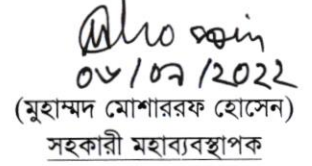 ০৮/০৭/2022
(মুহাম্মদ মোশাররফ হোসেন)
সহকারী মহাব্যবস্থাপক